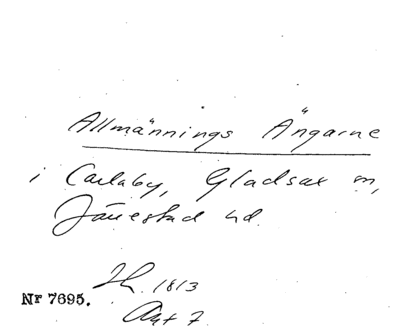 Allmännings Ängarne
i Carlaby, Gladsax m,
Järrestad hd.
1813
Nr 7695.
Akt 7